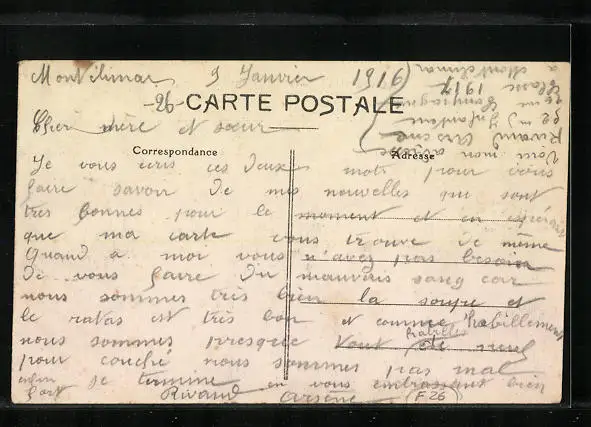 Montélimar 9 Janvier 1916
-26- CARTE POSTALE
Cher mère et sœur
Correspondance Adresse
Je vous écris ces deux mots pour vous
faire savoir de mes nouvelles qui sont
très bonnes pour le moment et en espérant
que ma carte vous trouve de même
Quand à moi vous n'avez pas besoin
de vous faire du mauvais sang car
nous sommes très bien la soupe et
le ratas est très bon et comme habillement
nous sommes presque tout habillé de neuf
pour couché nous sommes pas mal
enfin je termine en vous embrassant bien
fort Rivaud Arsène F 26
Voici mon adresse
Rivaud Arsène
Infanterie
Compagnie
Classe 1917
à Montélimar